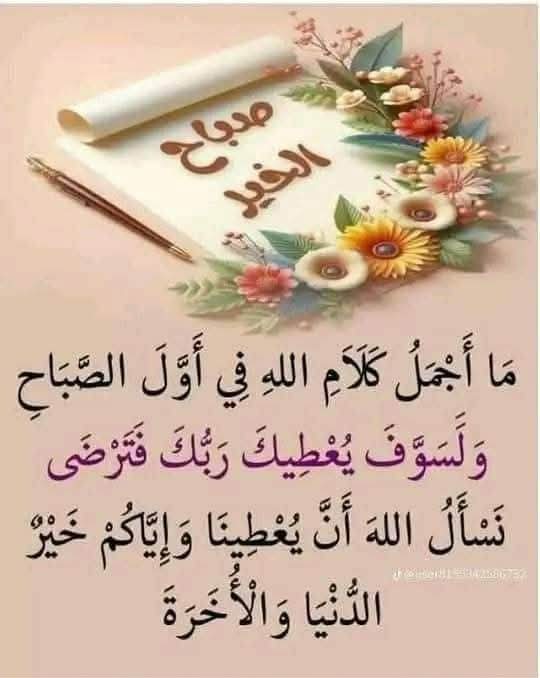 صباح
الخير
مَا أَجْمَلُ كَلَامِ اللهِ فِي أَوَّلَ الصَّبَاحِ
وَلَسَوَّفَ يُعْطِيكَ رَبُّكَ فَتَرْضَى
نَسْأَلُ اللهَ أَنَّ يُعْطِينَا وَإِيَّاكُمْ خَيْرُ
الدُّنْيَا وَالْأُخَرَةَ